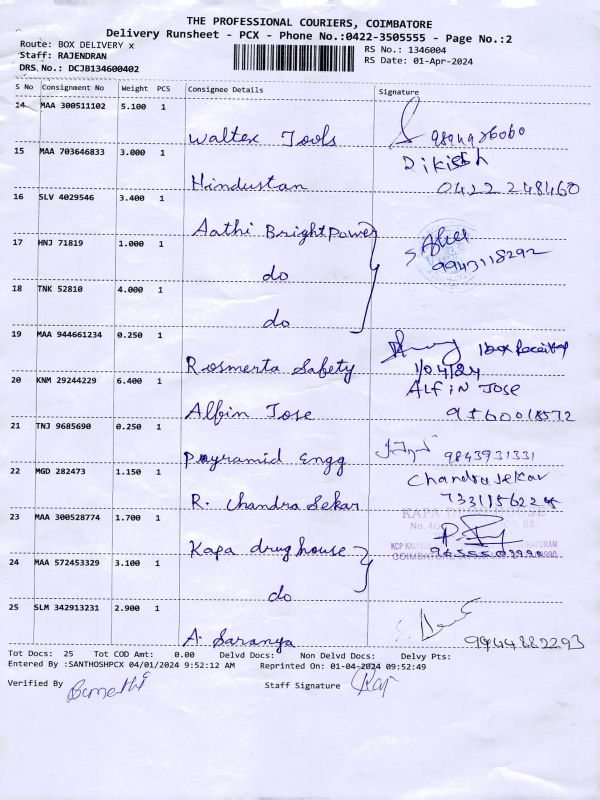 THE PROFESSIONAL COURIERS, COIMBATORE
Delivery Runsheet - PCX - Phone No.:0422-3505555 - Page No.:2
Route: BOX DELIVERY x
RS No.: 1346004
Staff: RAJENDRAN
RS Date: 01-Apr-2024
DRS No.: DCJB134600402
S No Consignment No Weight PCS Consignee Details Signature
14 MAA 300511102 5.100 1
Walter Tools
15 MAA 703646833 3.000 1
Hindustan 0422 248460
16 SLV 4029546 3.400 1
Aathi Bright Power
17 HNJ 71819 1.000 1
do 9943118292
18 TNK 52810 4.000 1
do
19 MAA 944661234 0.250 1
1 box Received
Rosmerta Safety 1/04/24
20 KNM 29244229 6.400 1 ALFIN JOSE
Albin Jose
21 TNJ 9685690 0.250 1
Payramid Engg 9843931331
22 MGD 282473 1.150 1 Chandrasekar
R. Chandra Sekar
KAPA
23 MAA 300528774 1.700 1
Kapa drug house
24 MAA 572453329 3.100 1
do
25 SLM 342913231 2.900 1
A. Saranya 9944882293
Tot Docs: 25 Tot COD Amt: 0.00 Delvd Docs: Non Delvd Docs: Delvy Pts:
Entered By :SANTHOSHPCX 04/01/2024 9:52:12 AM Reprinted On: 01-04-2024 09:52:49
Verified By Staff Signature